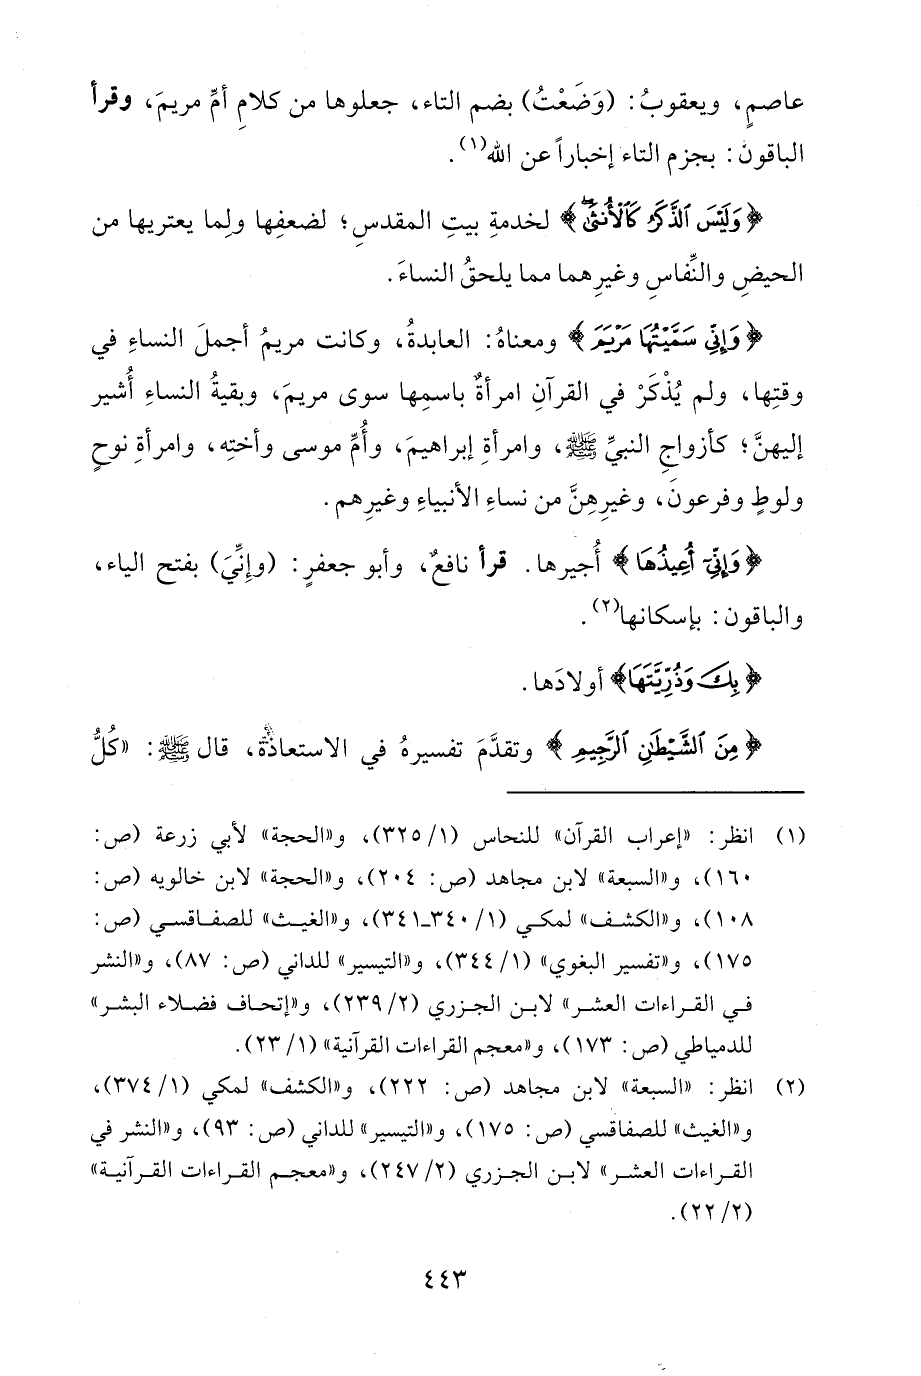 عاصمٍ، ويعقوبُ: (وَضَعْتُ) بضم التاء، جعلوها من كلامِ أمِّ مريمَ، وقرأ
الباقون: بجزم التاء إخباراً عن الله(١).
﴿وَلَيْسَ ٱلذَّكَرُ كَٱلْأُنثَىٰۖ﴾ لخدمةِ بيتِ المقدسِ؛ لضعفِها ولِما يعتريها من
الحيضِ والنِّفاسِ وغيرِهما مما يلحقُ النساءَ.
﴿وَإِنِّي سَمَّيْتُهَا مَرْيَمَ﴾ ومعناهُ: العابدةُ، وكانت مريمُ أجملَ النساءِ في
وقتِها، ولم يُذْكَرْ في القرآنِ امرأةٌ باسمِها سوى مريمَ، وبقيةُ النساءِ أُشير
إليهنَّ؛ كأزواجِ النبيِّ ﷺ، وامرأةِ إبراهيمَ، وأُمِّ موسى وأختِه، وامرأةِ نوحٍ
ولوطٍ وفرعونَ، وغيرِهِنَّ من نساءِ الأنبياءِ وغيرِهم.
﴿وَإِنِّيٓ أُعِيذُهَا﴾ أُجيرها. قرأ نافعٌ، وأبو جعفرٍ: (وإِنِّيَ) بفتح الياء،
والباقون: بإسكانها(٢).
﴿بِكَ وَذُرِّيَّتَهَا﴾ أولادَها.
﴿مِنَ ٱلشَّيْطَٰنِ ٱلرَّجِيمِ﴾ وتقدَّمَ تفسيرهُ في الاستعاذة، قال ﷺ: «كُلُّ
(١) انظر: «إعراب القرآن» للنحاس (١/ ٣٢٥)، و«الحجة» لأبي زرعة (ص:
١٦٠)، و«السبعة» لابن مجاهد (ص: ٢٠٤)، و«الحجة» لابن خالويه (ص:
١٠٨)، و«الكشف» لمكي (١/ ٣٤٠ـ٣٤١)، و«الغيث» للصفاقسي (ص:
١٧٥)، و«تفسير البغوي» (١/ ٣٤٤)، و«التيسير» للداني (ص: ٨٧)، و«النشر
في القراءات العشر» لابن الجزري (٢/ ٢٣٩)، و«إتحاف فضلاء البشر»
للدمياطي (ص: ١٧٣)، و«معجم القراءات القرآنية» (١/ ٢٣).
(٢) انظر: «السبعة» لابن مجاهد (ص: ٢٢٢)، و«الكشف» لمكي (١/ ٣٧٤)،
و«الغيث» للصفاقسي (ص: ١٧٥)، و«التيسير» للداني (ص: ٩٣)، و«النشر في
القراءات العشر» لابن الجزري (٢/ ٢٤٧)، و«معجم القراءات القرآنية»
(٢/ ٢٢).
٤٤٣